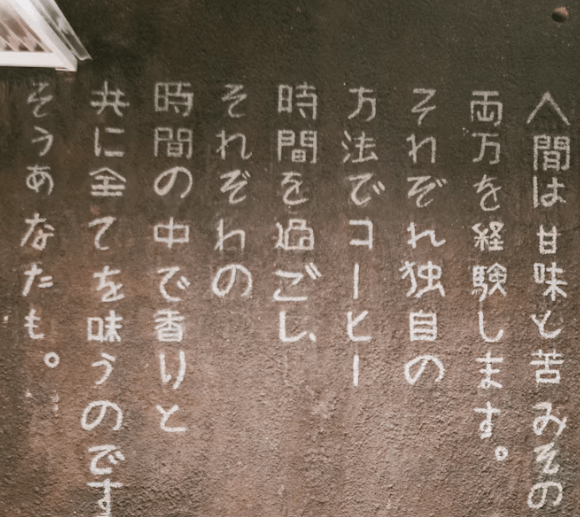 人間は甘味と苦みその
両方を経験します。
それぞれ独自の
方法でコーヒー
時間を過ごし、
それぞれの
時間の中で香りと
共に全てを味うのです
そうあなたも。